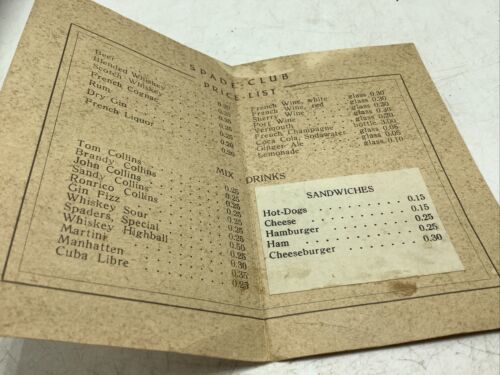 SPADE-CLUB
PRICE-LIST
Beer
Blended Whiskey
Scotch Whiskey
French Cognac
Rum
Dry Gin
French Liquor
French Wine, white glass
French Wine, red glass
Sherry Wine glass
Port Wine glass
Vermouth glass
French Champagne bottle 3.00
Coca Cola, Sodawater glass 0.05
Ginger Ale glass 0.05
Lemonade glass 0.10
MIX DRINKS
Tom Collins 0.25
Brandy Collins 0.25
John Collins 0.25
Sandy Collins 0.25
Ronrico Collins 0.25
Gin Fizz 0.25
Whiskey Sour 0.25
Spaders, Special 0.50
Whiskey Highball 0.25
Martini 0.30
Manhatten 0.35
Cuba Libre 0.25
SANDWICHES
Hot-Dogs 0.15
Cheese 0.15
Hamburger 0.25
Ham 0.25
Cheeseburger 0.30